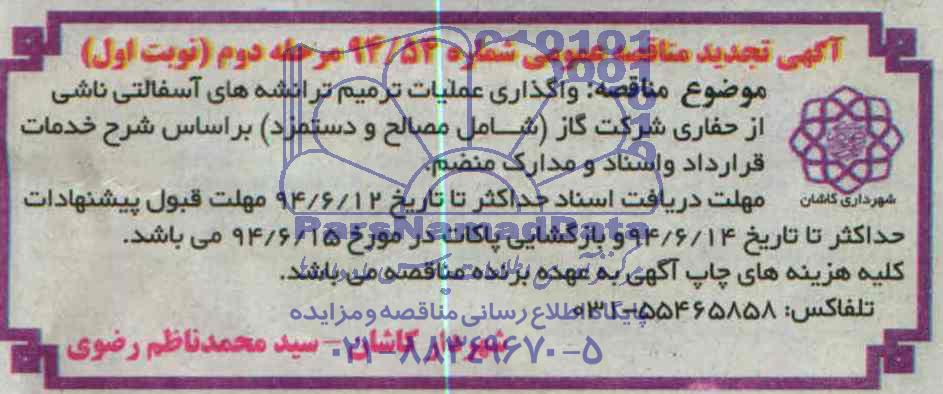 آگهی تجدید مناقصه عمومی شماره ۹۴/۵۲ مرحله دوم (نوبت اول)
موضوع مناقصه: واگذاری عملیات ترمیم ترانشه های آسفالتی ناشی
از حفاری شرکت گاز (شامل مصالح و دستمزد) براساس شرح خدمات
قرارداد واسناد و مدارک منضم.
شهرداری کاشان
مهلت دریافت اسناد حداکثر تا تاریخ ۹۴/۶/۱۲ مهلت قبول پیشنهادات
حداکثر تا تاریخ ۹۴/۶/۱۴ و بازگشایی پاکات در مورخ ۹۴/۶/۱۵ می باشد.
کلیه هزینه های چاپ آگهی به عهده برنده مناقصه می باشد.
تلفاکس: ۵۵۴۶۵۸۵۸-۰۳۱
شهردار کاشان - سید محمدناظم رضوی
ParsNamadData
پایگاه اطلاع رسانی مناقصه و مزایده
۰۲۱-۸۸۳۴۹۶۷۰-۵